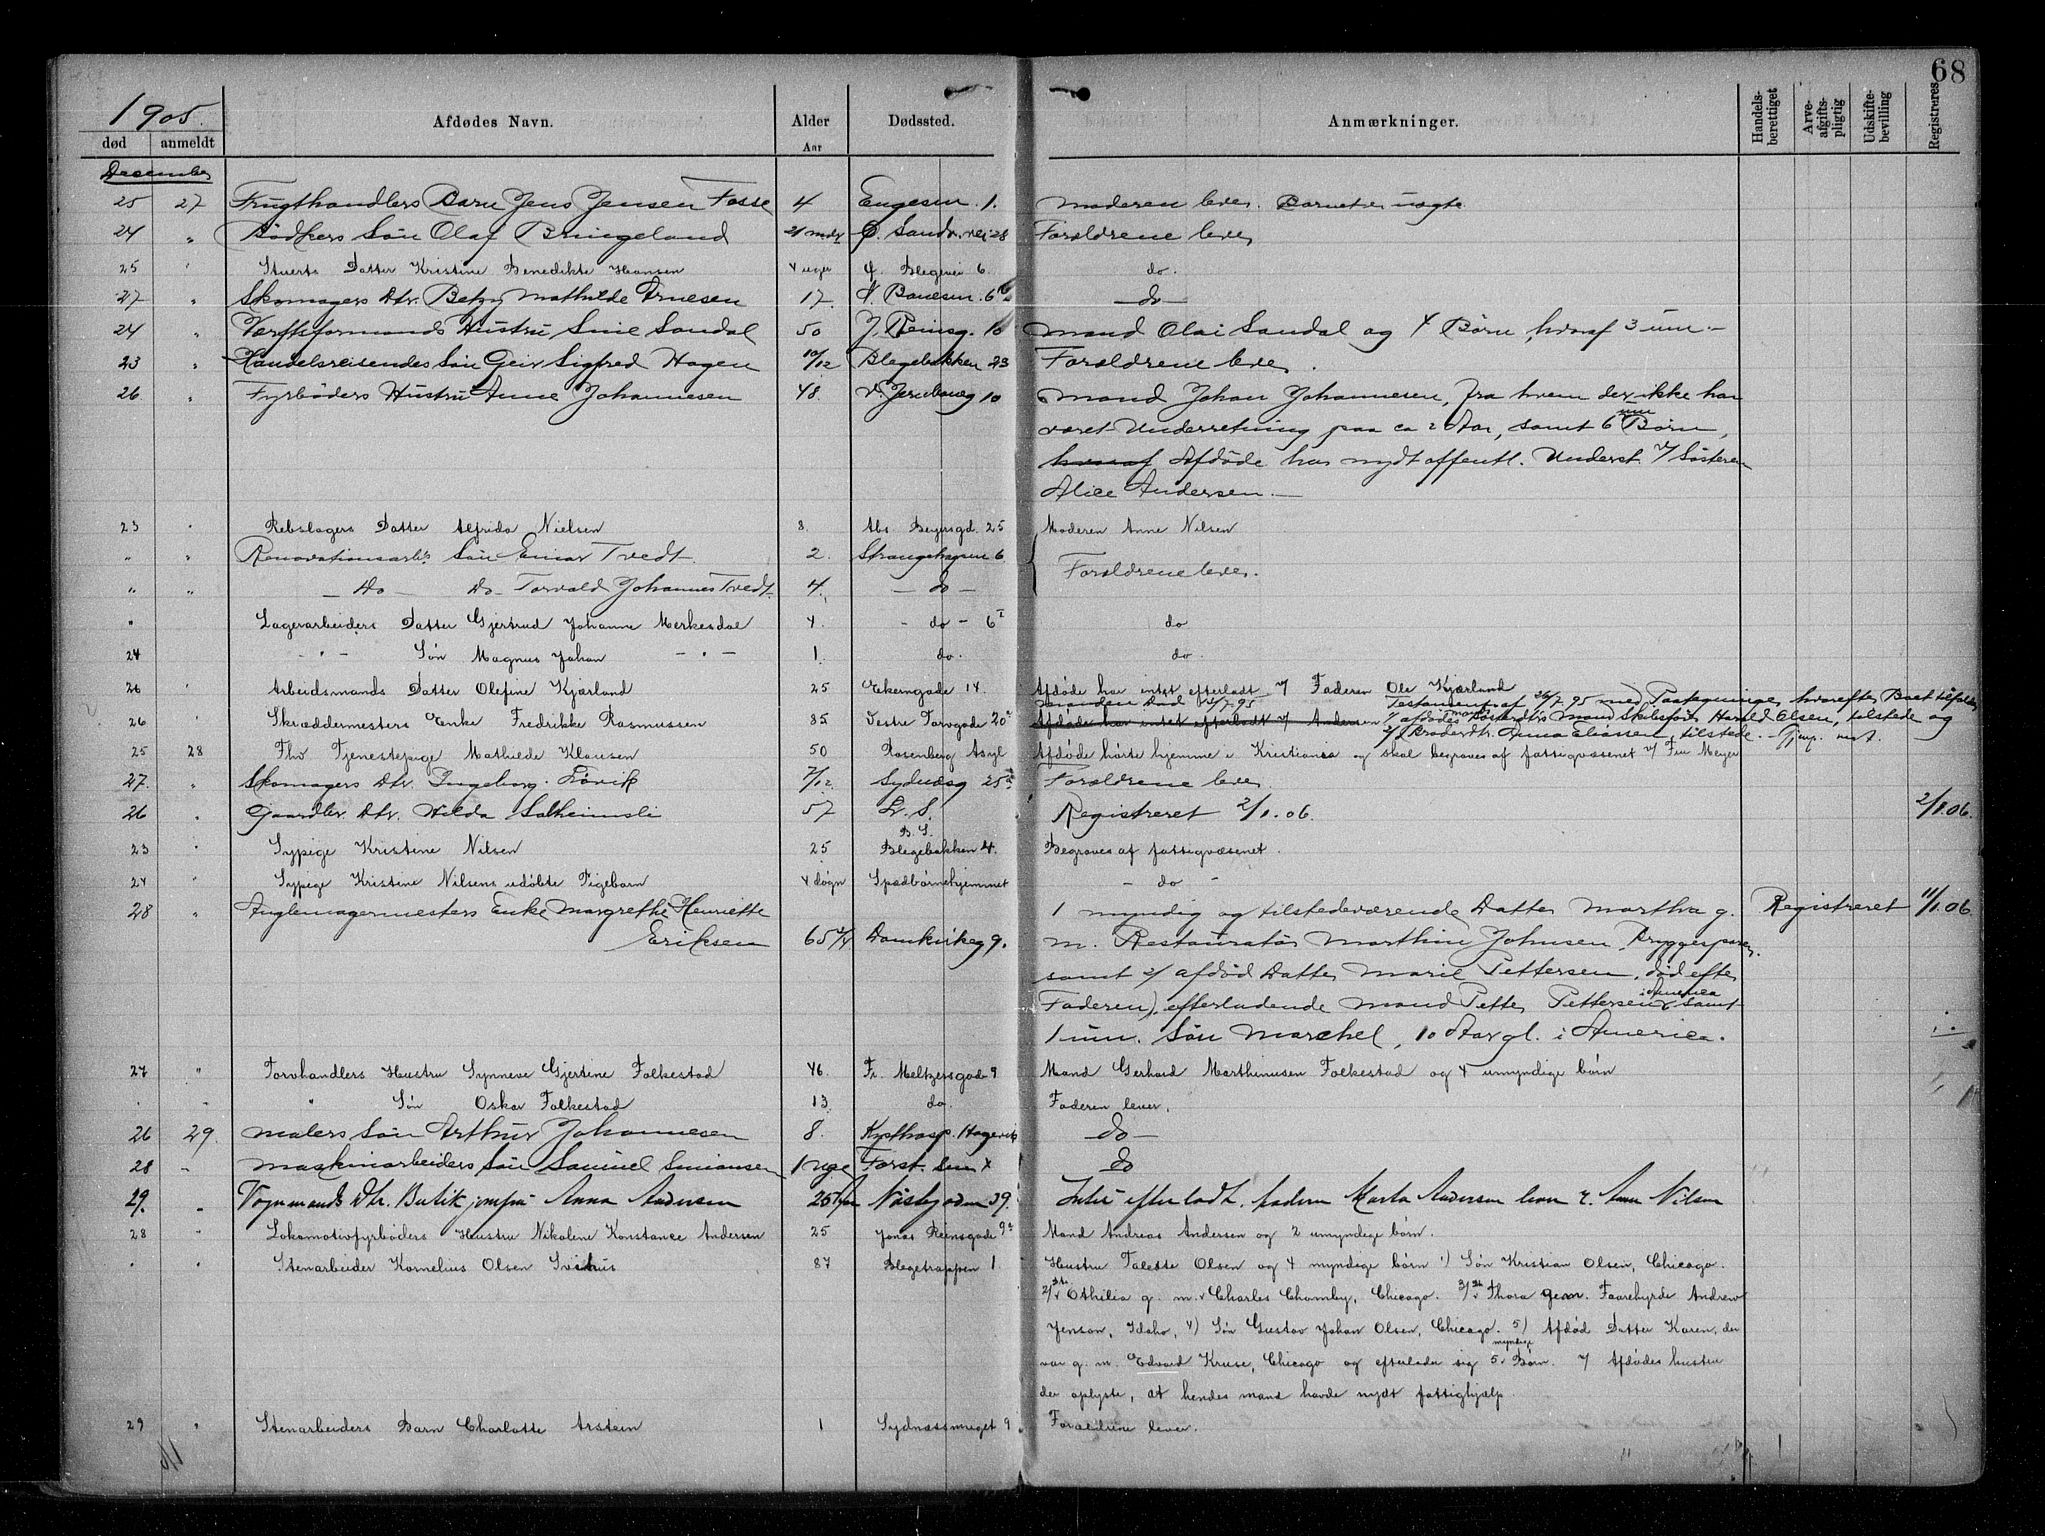 68
1905.
død anmeldt Afdødes Navn. Alder Aar Dødssted. Anmærkninger. Handels-berettiget Arve-afgifts-pligtig Udskifte-bevilling Registreres
December
25 27 Frugthandlers Barn Jens Jensen Fosse 4 Engesm. 1. Moderen lever. Barnet er uægte.
24 " Bødkers Søn Olaf Bringeland 21 mdr. Ø. Sandv.vei 28 Forældrene lever
25 " Stuerts Datter Kristine Benedikte Hansen 4 uger Blegevei 6. do.
27 " Skomagers Dtr. Betzy Mathilde Arnesen 17. Banesm. 6 - do -
24 " Værftsformands Hustru Sine Sandal 50 J. Reinsg. 10 Mand Olai Sandal og 4 Børn, hvoraf 3 um -
23 " Handelsreisendes Søn Geir Sigfred Hagen 10/12 Blegebakken 23 Forældrene lever.
26 " Fyrbøders Hustru Anne Johannesen 48. V. Jernbaneg 10 Mand Johan Johannesen, fra hvem der ikke har
været Underretning paa ca 2 Aar, samt 6 um Børn,
hvoraf Afdøde har nydt offentl. Underst. v/ Søsteren
Alice Andersen. -
23 " Rebslagers Datter Alfrida Nielsen 8. Abs. Beyersgd. 25 Moderen Anne Nilsen
" " Renovationsarb. Søn Einar Tvedt. 2. Strangehagen 6 Forældrene lever.
" " - Do - Do - Torvald Johannes Tvedt 4. - do -
" Lagerarbeiders Datter Gjertrud Johanne Merkesdal 4. - do - 6 do
24 - " - Søn Magnus Johan - " - 1. do. do.
26 " Arbeidsmands Datter Olefine Kjærland 25 Ekerngade 14. Afdøde har intet efterladt v/ Faderen Ole Kjærland
26 " Skræddermesters Enke Fredrikke Rasmussen 85 Vestre Torvgade 20 Manden død 14/7 95 Testament af 26/7.95 med Paategninger, hvorefter Boet tilfalder
Afdøde har intet efterladt v/ Andersen 1/ afdødes mands Søsterdtrs Mand Skibsfører Harald Olsen, tilstede og
2/ Broderdtr. Anna Eliassen, tilstede.
25 28 Fhv Tjenestepige Mathilde Klausen 50 Rosenberg Asyl Afdøde hørte hjemme i Kristiania og skal begraves af fattigvæsenet v/ Fru Meyer
27. " Skomagers Dtr. Ingeborg Løvik 7/12 Sydnæsg 25 Forældrene lever
26 " Gaardbr. Dtr. Hilda Solheimsli 57 Lr. S. Registreret 2/1.06. 2/1.06.
23 " Sypige Kristine Nilsen 25 B. S. Blegebakken 4. Begraves af fattigvæsenet.
24 " Sypige Kristine Nilsens udøbte Pigebarn 4 døgn Spædbørnehjemmet - do -
28 " Anglemagermesters Enke Margrethe Henriette 1 myndig og tilstedeværende Datter Martha g. Registreret 11/1.06.
Eriksen 65 3/4 Domkirkeg 9. m. Restauratør Marthin Johnsen, Bryggesporen,
samt 2/ afdød Datter Marie Pettersen, død efter
Faderen), efterladende Mand Petter Pettersen i America samt
1 um. Søn Marchel, 10 Aar gl. i America.
27 " Torvhandlers Hustru Synneve Gjertine Folkestad 46. Fr. Meltzersgade 9 Mand Gerhard Marthinusen Folkestad og 4 umyndige børn
" " " Søn Oskar Folkestad 13. do. Faderen lever.
26 29. Malers Søn Arthur Johannesen 8. Kysthosp. Hagevik - do -
28 " Maskinarbeiders Søn Samuel Simonsen 1 uge Forst. Sm. 4 do
29. " Vognmands Dtr. Butikjomfru Anna Andersen 26 Aar Nøstegaden 39. Intet efterladt. Faderen Marta Andersen lever v. Anna Nilsen
28 " Lokomotivfyrbøders Hustru Nikoline Konstance Andersen 25 Jonas Reinsgade 9a Mand Andreas Andersen og 2 umyndige børn.
" " Stenarbeider Kornelius Olsen 87 Blegetrappen 1 Hustru Talette Olsen og 4 myndige børn 1) Søn Kristian Olsen, Chicago.
2/ Othilia g. m. Charles Chamby, Chicago. 3/ Thora gem. Faarehyrde Andrew
Jenson, Idaho, 4) Søn Gustav Johan Olsen, Chicago. 5) Afdød Datter Karen, der
var g. m. Edvard Kruse, Chicago og efterlader sig 5 myndige Børn. v/ Afdødes hustru
der oplyste, at hendes mand havde nydt fattighjælp.
29 " Stenarbeiders Barn Charlotte Arstein 1 Sydnæssmuget 9 Forældrene lever.